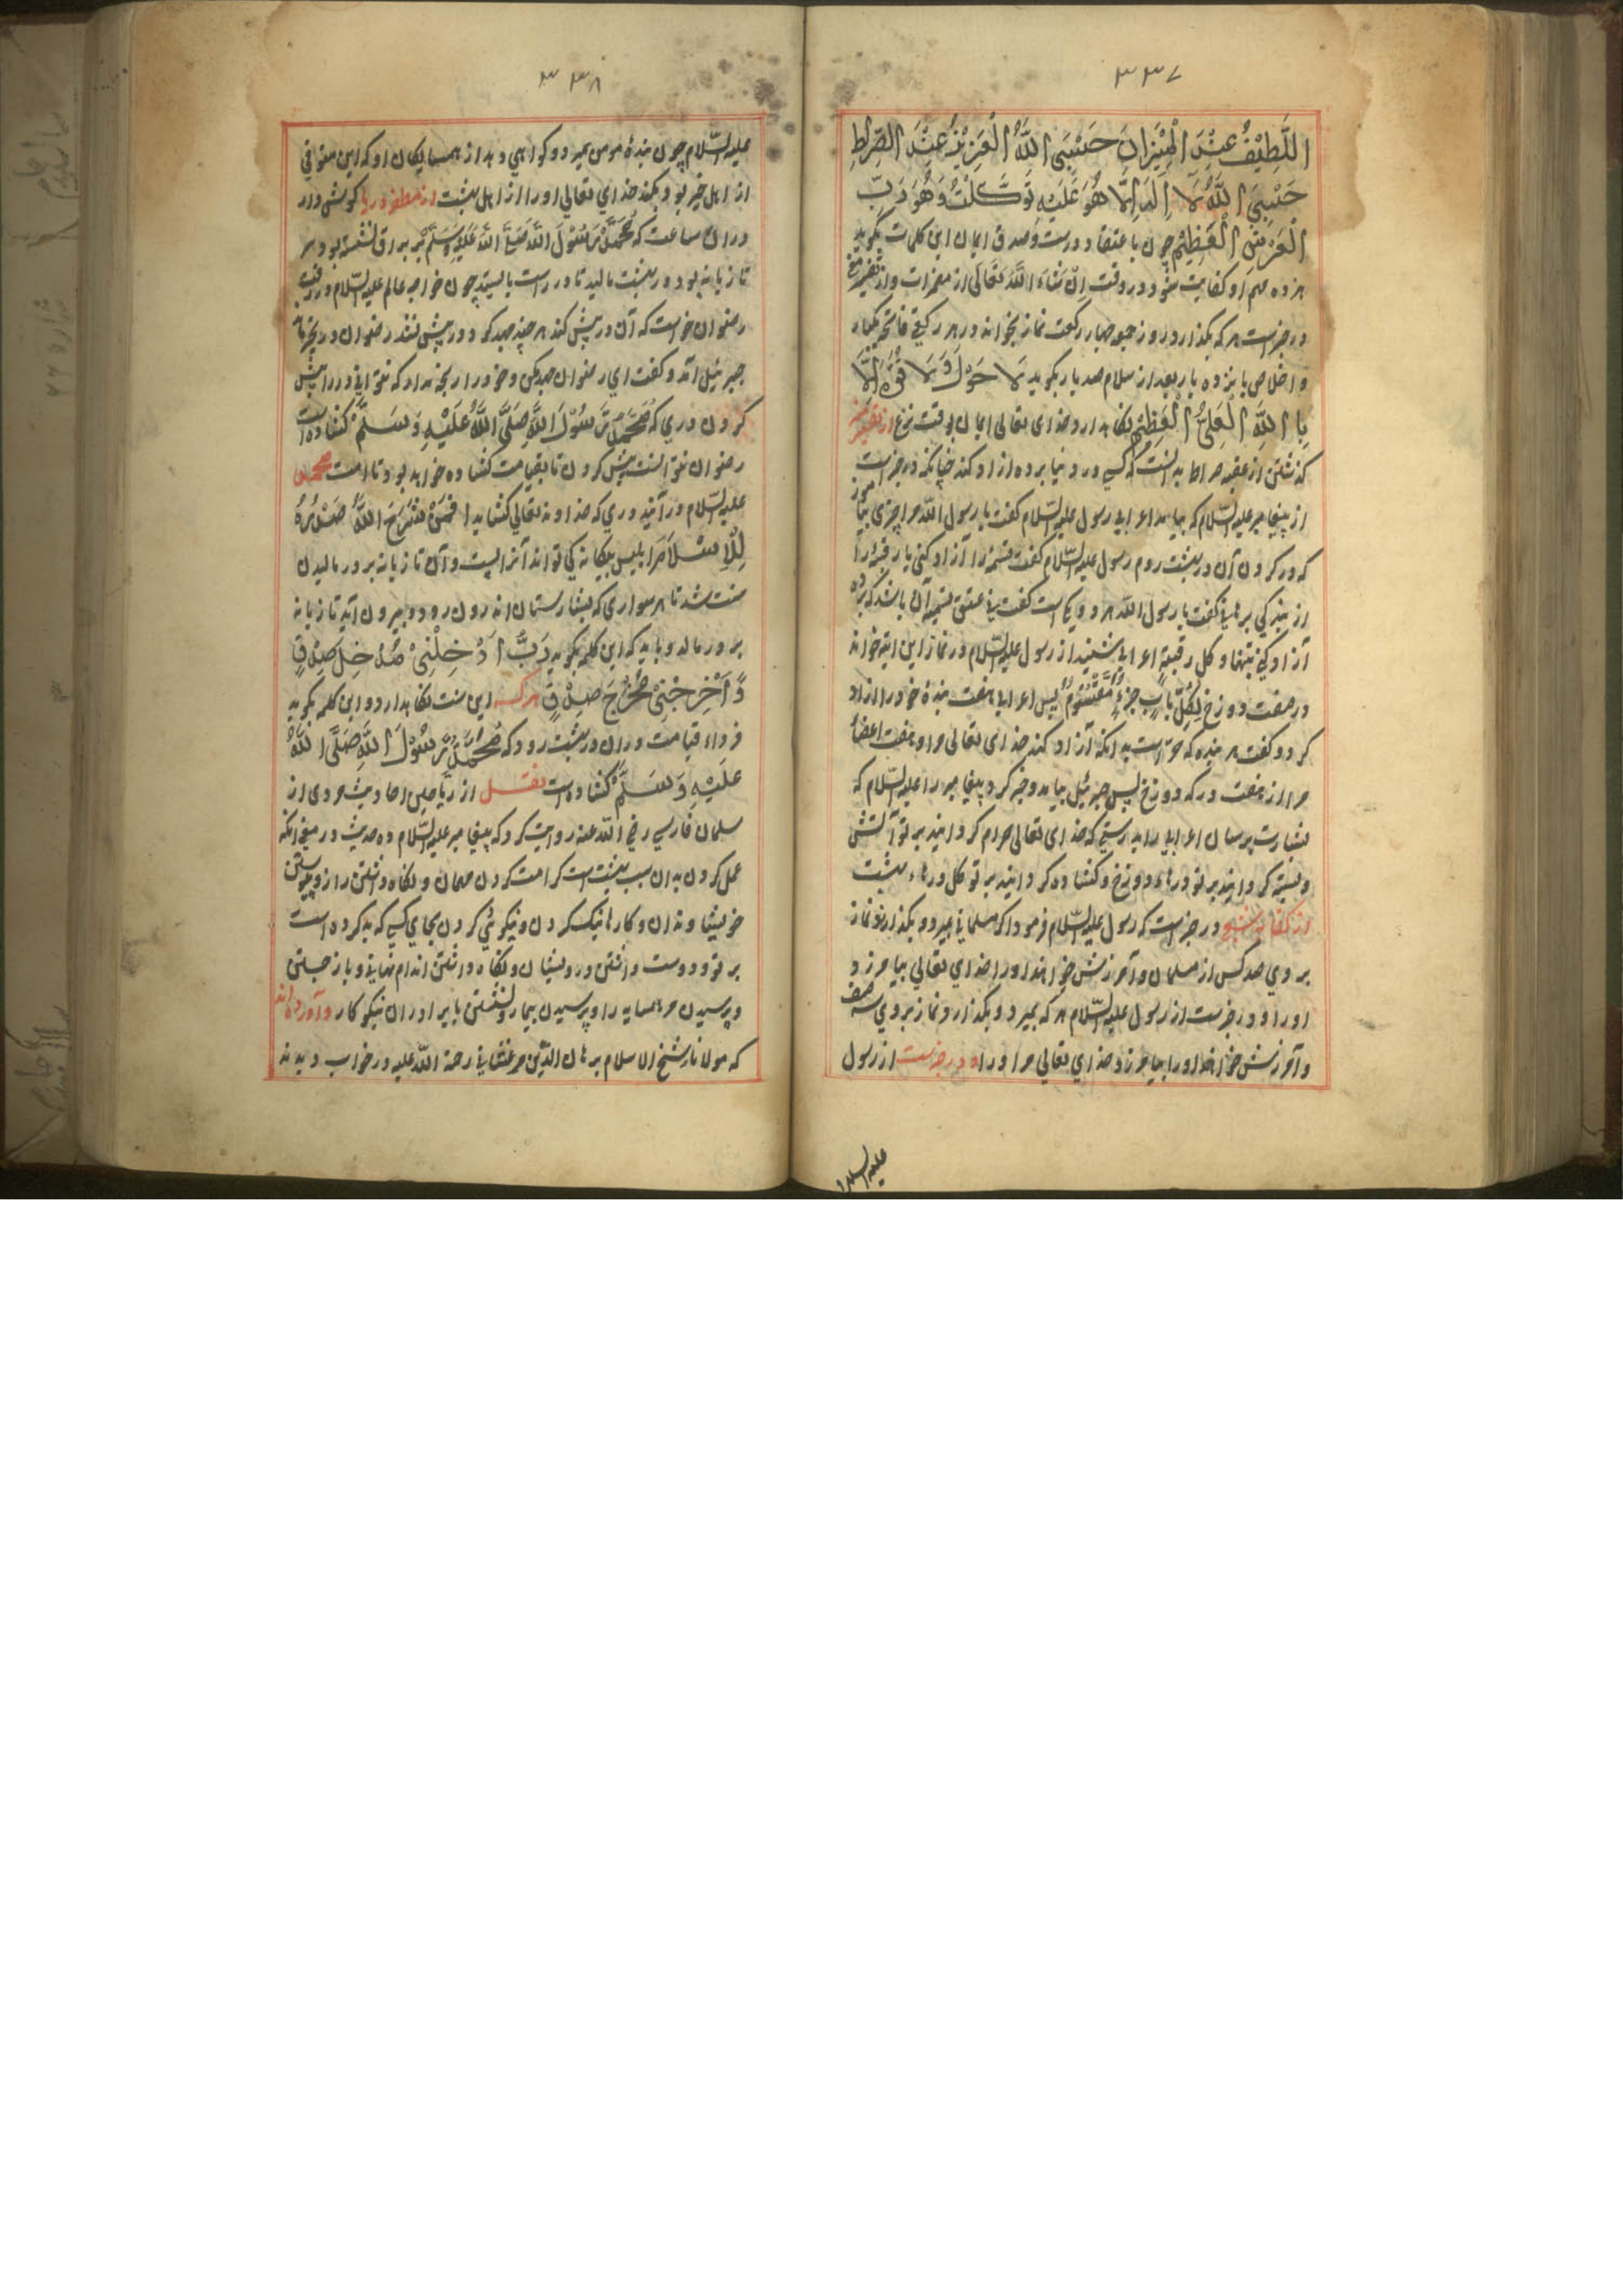 ٣٣٧
اللَّطِیْفُ عِنْدَ الْمِیْزَانِ حَسْبِیَ اللَّهُ الْعَزِیْزُ عِنْدَ الصِّرَاطِ
حَسْبِیَ اللَّهُ لَا اِلَهَ اِلَّا هُوَ عَلَیْهِ تَوَکَّلْتُ وَهُوَ رَبُّ
الْعَرْشِ الْعَظِیْمِ چون باعتقاد درست و صدق ایمان این کلمات بگوید
هر ده مهم او کفایت شود در وقت اِنْ شَاءَ اللَّهُ تَعَالَی از مضمرات و از تفسیر
در خبرست هر که بگذارد روز جمعه چهار رکعت نماز بخواند در هر رکعتی فاتحه یکبار
و اخلاص پانزده بار بعد از سلام صد بار بگوید لَا حَوْلَ وَلَا قُوَّةَ اِلَّا
بِاللَّهِ الْعَلِیِّ الْعَظِیْمِ نگاهدارد خدای تعالی ایمان بوقت نزع از تفسیر
گذشتن از عقبه صراط به آنست که کسی در دنیا برده ازاد کند چنانکه در خبرست
از پیغامبر علیه السّلام که بیامد اعرابی رسول علیه السّلام گفت یا رسول اللّه مرا چیزی بیاموز
که در کردن آن در بهشت روم رسول علیه السّلام گفت نسمه را آزاد کنی یا رقبه را
از بندگی برهانی گفت یا رسول اللّه هر دو یکی است گفت نی عتق نسمه آن باشد که برده
آزاد کنی تنها و کل رقبه اعرابی شنید از رسول علیه السّلام در نماز این ایة خواند
در صفت دوزخ لِکُلِّ بَابٍ جُزْءٌ مَّقْسُوْمٌ پس اعرابی هفت بندهٔ خود را ازاد
کرد و گفت هر بنده که مراست به انکه آزاد کند خدای تعالی مرا و هفت اعضأ
مرا از هفت درکه دوزخ پس جبرئیل بیامد و خبر کرد پیغامبر را علیه السّلام که
بشارت برسان اعرابی را بدرستی که خدای تعالی حرام گردانید بر تو آتش
و بسته گردانید بر تو درهاء دوزخ و کشاده گردانید بر تو کل درهاء بهشت
در خبرست که رسول علیه السّلام فرمود اگر مسلمانی بمیرد و بگذارند نماز
بر وی صد کس از مسلمان و آمرزش خواهند او را خدای تعالی بیامرزد
او را و در خبرست از رسول علیه السّلام هر که بمیرد و بگذارد نماز بر وی سه صف
و آمرزش خواهند او را بیامرزد خدای تعالی مر او را و در خبرست از رسول
علیه السلام
٣٣٨
علیه السّلام چون بندهٔ مومن بمیرد و گواهی دهد از همسایگان او که این متوفی
از اهل خیر بود بکند خدای تعالی او را از اهل بهشت از گوش دار
دران ساعت که مُحَمَّدٌ رَّسُوْلُ اللَّهِ صَلَّی اللَّهُ عَلَیْهِ وَسَلَّمَ بر براق نشسته بود سر
تازیانه بود در بهشت مالید تا در راست بایستد چون خواجه عالم علیه السّلام در رفت
رضوان خواست که آن در پیش کند هر چند جهد کرد در پیش نشد رضوان
جبرئیل آمد و گفت ای رضوان جهد مکن و خود را رنجه مدار که نتوانی در را پیش
کردن دری که مُحَمَّدٌ رَّسُوْلُ اللَّهِ صَلَّی اللَّهُ عَلَیْهِ وَسَلَّمَ کشاده است
رضوان نتوانست پیش کردن تا بقیامت کشاده خواهد بود تا امت محمد
علیه السّلام در آیند دری که خداوند تعالی کشاید اَفَمَنْ شَرَحَ اللَّهُ صَدْرَهُ
لِلْاِسْلَامِ ابلیس بیگانه کی تواند آنرا بست و آن تازیانه بر در مالیدن
سنت شد تا هر سواری که بشارستان اندرون رود و بیرون آید تازیانه
بر در مالد و باید که این کلمه بگوید رَبِّ اَدْخِلْنِیْ مُدْخَلَ صِدْقٍ
وَّ اَخْرِجْنِیْ مُخْرَجَ صِدْقٍ هر کسه این سنت نگاهدارد و این کلمه بگوید
فرداء قیامت دران در بهشت رود که مُحَمَّدٌ رَّسُوْلُ اللَّهِ صَلَّی اللَّهُ
عَلَیْهِ وَسَلَّمَ کشاده است نقل از ریاحین احادیث مروی از
سلمان فارسی رضی اللّه عنه روایت کرد که پیغامبر علیه السّلام ده حدیث
عمل کردن بدان سبب بهشت است کرامت کردن مهمان و نگاه داشتن راز و پیوستن
خویشاوندان و کارها نیک کردن و نیکوئی کردن بجای کسی که بد کرده است
بر تو و دوست داشتن درویشان و نگاه داشتن اندام نهانی و باز جستن
و پرسیدن مر همسایه را و پرسیدن بیمار و نشستن با برادران نیکوکار و آورده اند
که مولانا شیخ الاسلام برهان الدّین مرغینانی رحمة اللّه علیه در خواب دیدند